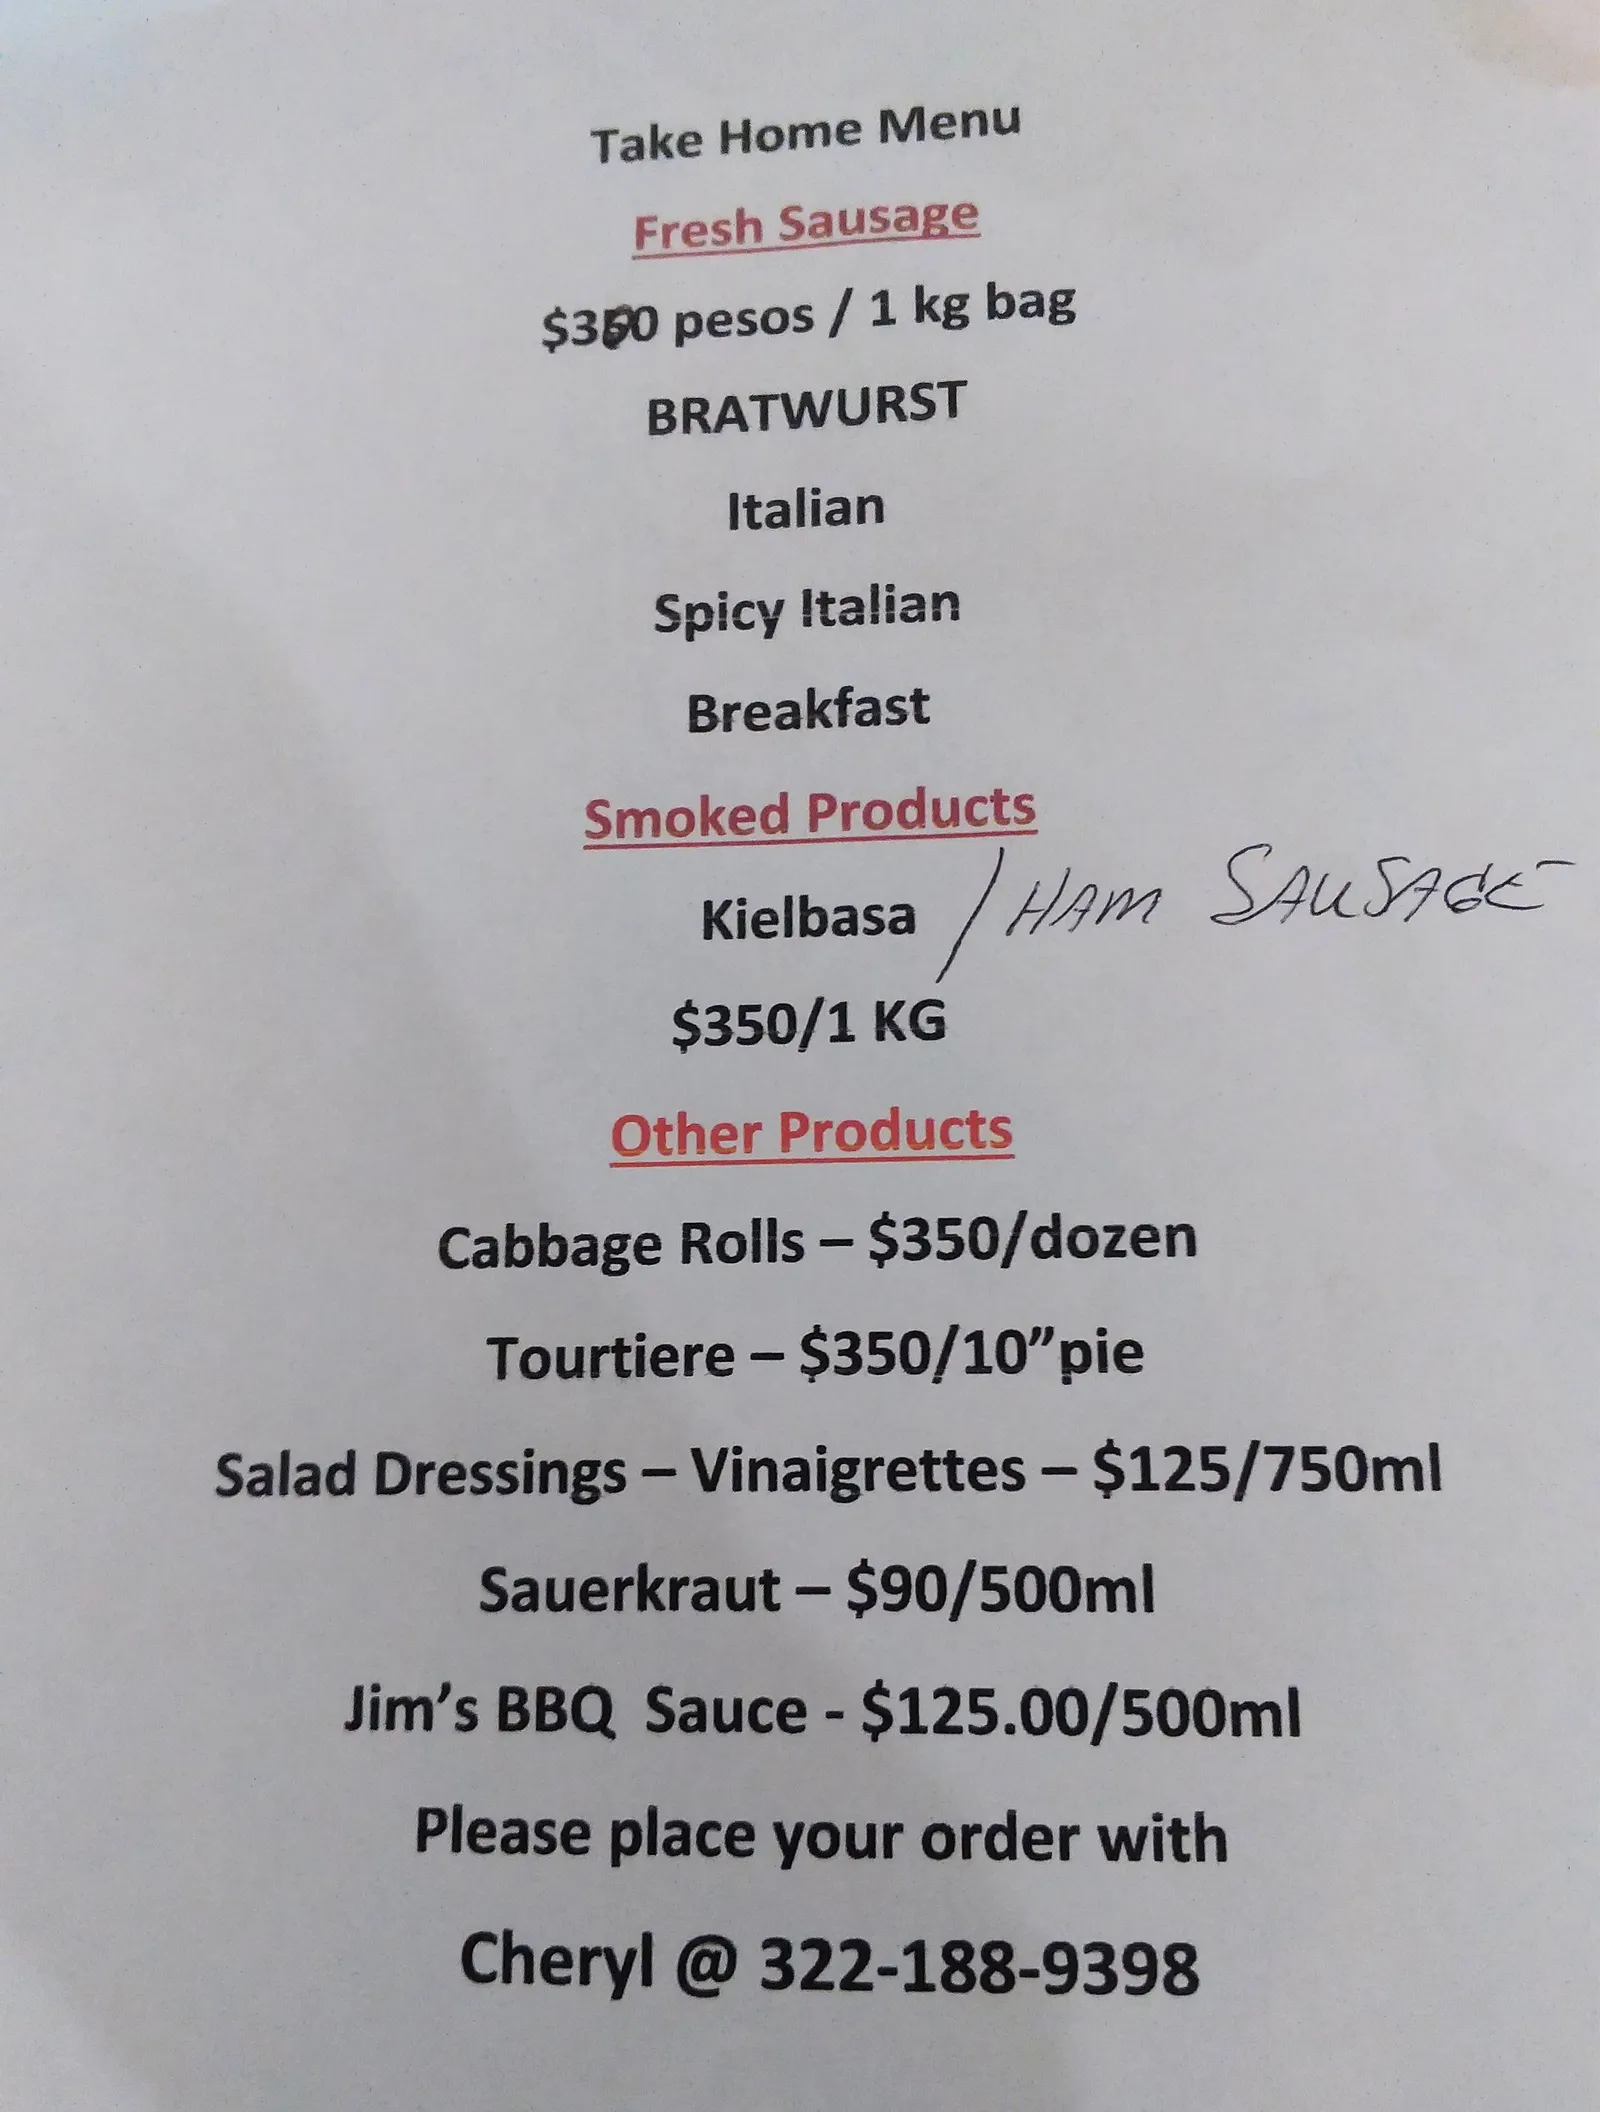 Take Home Menu
Fresh Sausage
pesos / 1 kg bag
BRATWURST
Italian
Spicy Italian
Breakfast
Smoked Products
Kielbasa / HAM SAUSAGE
$350/1 KG
Other Products
Cabbage Rolls – $350/dozen
Tourtiere – $350/10”pie
Salad Dressings – Vinaigrettes – $125/750ml
Sauerkraut – $90/500ml
Jim’s BBQ Sauce - $125.00/500ml
Please place your order with
Cheryl @ 322-188-9398